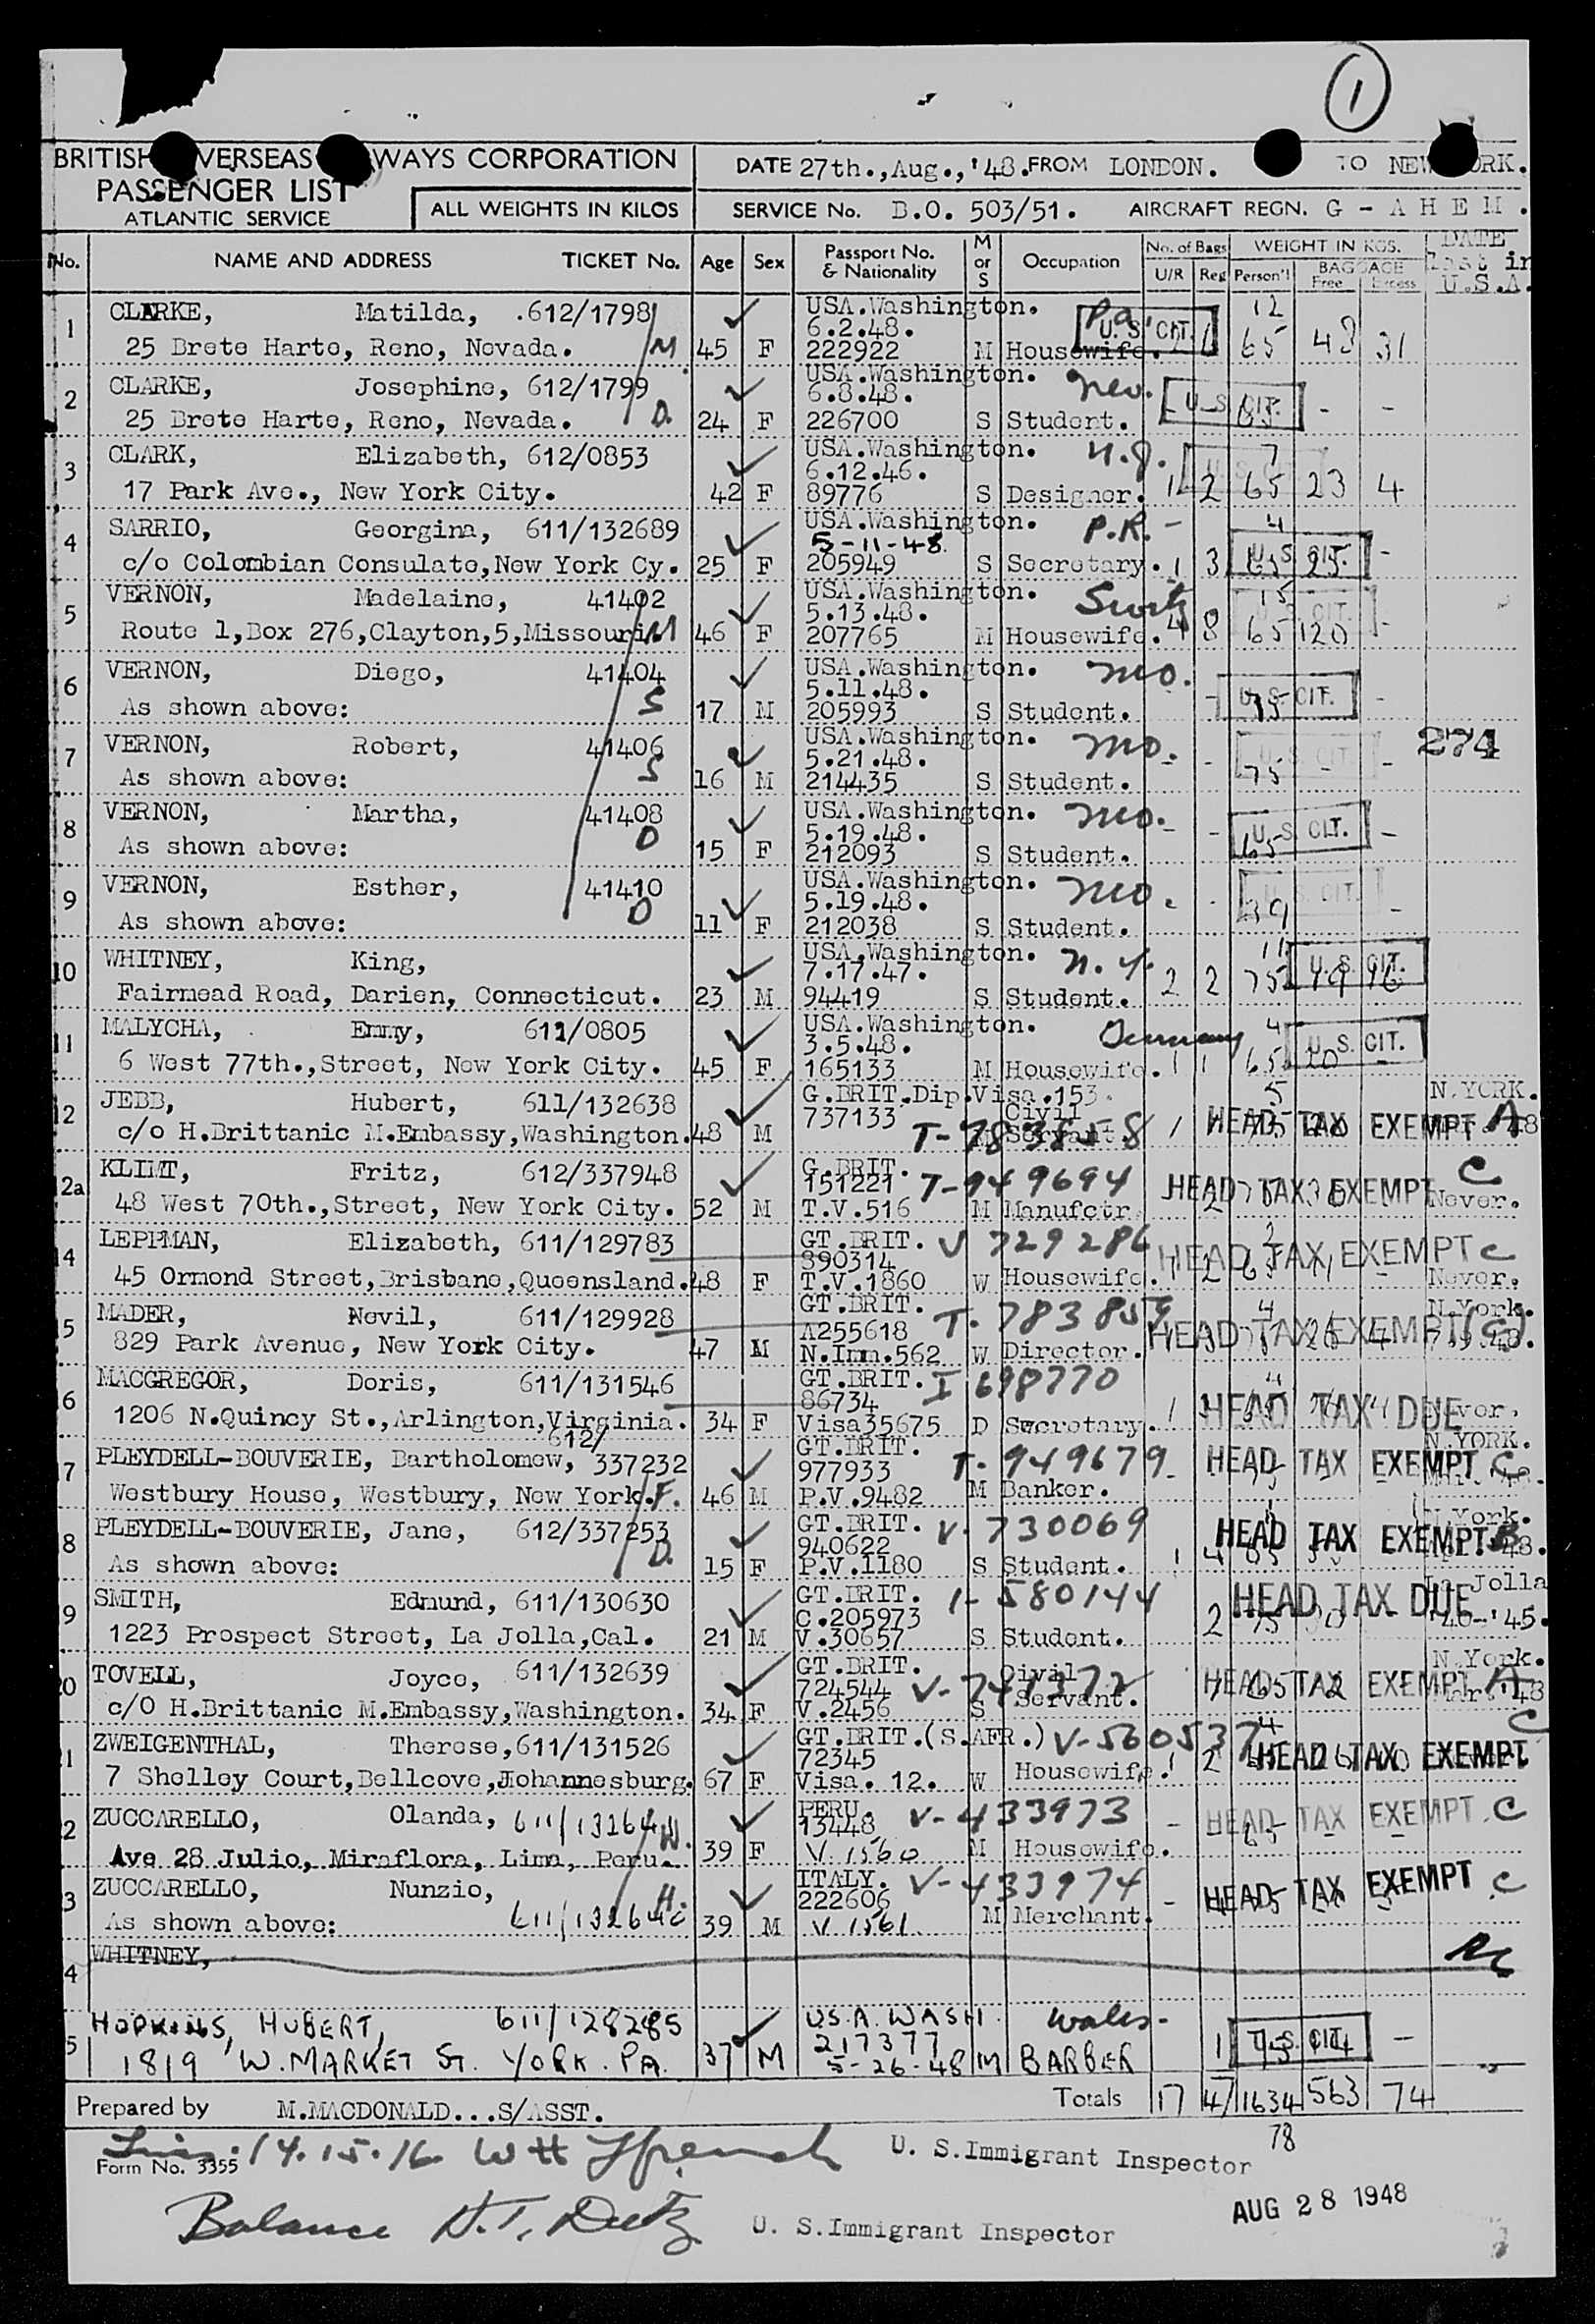 1
BRITISH OVERSEAS WAYS CORPORATION
PASSENGER LIST
ATLANTIC SERVICE
ALL WEIGHTS IN KILOS
DATE 27th.,Aug.,'48. FROM LONDON. TO NEW YORK.
SERVICE No. B.O. 503/51. AIRCRAFT REGN. G - A H E M .
No. NAME AND ADDRESS TICKET No. Age Sex Passport No. & Nationality M or S Occupation No. of Bags U/R Reg WEIGHT IN KGS. Person'l BAGGAGE Free Excess DATE last in U.S.A.
1 CLARKE, Matilda, .612/1798 USA.Washington. Pa. 12
6.2.48. U.S. CIT.
25 Brete Harte, Reno, Nevada. M 45 F 222922 M Housewife. 65 48 31
2 CLARKE, Josephine, 612/1799 USA.Washington. Nev.
6.8.48. U.S. CIT.
25 Brete Harte, Reno, Nevada. D. 24 F 226700 S Student. - -
3 CLARK, Elizabeth, 612/0853 USA.Washington. N.J. 7
6.12.46.
17 Park Ave., New York City. 42 F 89776 S Designer. 1 2 65 23 4
4 SARRIO, Georgina, 611/132689 USA.Washington. P.R. - 4
5-11-48. U.S. CIT.
c/o Colombian Consulate,New York Cy. 25 F 205949 S Secretary. 1 3 65 25 -
5 VERNON, Madelaine, 41402 USA.Washington. 15
5.13.48. CIT.
Route 1,Box 276,Clayton,5,Missouri. M 46 F 207765 M Housewife. 4 8 65 120 -
6 VERNON, Diego, 41404 USA.Washington. Mo.
S 5.11.48. U.S. CIT.
As shown above: 17 M 205993 S Student. -
7 VERNON, Robert, 41406 USA.Washington. Mo. 274
S 5.21.48. U.S. CIT.
As shown above: 16 M 214435 S Student. - - 75 - -
8 VERNON, Martha, 41408 USA.Washington. Mo.
D 5.19.48. U.S. CIT.
As shown above: 15 F 212093 S Student. - - 65 -
9 VERNON, Esther, 41410 USA.Washington. Mo.
D 5.19.48. U.S. CIT.
As shown above: 11 F 212038 S Student. 39 -
10 WHITNEY, King, USA.Washington. N.Y. 11
7.17.47. U.S. CIT.
Fairmead Road, Darien, Connecticut. 23 M 94419 S Student. 2 2 75 49 16
11 MALYCHA, Emmy, 611/0805 USA.Washington. Germany 4
3.5.48. U.S. CIT.
6 West 77th.,Street, New York City. 45 F 165133 M Housewife. 1 1 65 20 -
12 JEBB, Hubert, 611/132638 G.BRIT.Dip.Visa.153. 5 N.YORK.
737133 Civil HEAD TAX EXEMPT A
c/o H.Brittanic M.Embassy,Washington. 48 M Servant 1
2a KLIMT, Fritz, 612/337948 G.BRIT. C
151221 T-949694 HEAD TAX EXEMPT
48 West 70th.,Street, New York City. 52 M T.V.516 M Manufctr. 2 Never.
4 LEPPMAN, Elizabeth, 611/129783 GT.BRIT. V 729286
890314 HEAD TAX EXEMPT C
45 Ormond Street,Brisbane,Queensland. 48 F T.V.1860 W Housewife. 1 2 Never.
5 MADER, Nevil, 611/129928 GT.BRIT. T. 783859 4 N.York.
A255618 HEAD TAX EXEMPT (C)
829 Park Avenue, New York City. 47 M N.Imm.562 W Director.
6 MACGREGOR, Doris, 611/131546 GT.BRIT. I 698770 4
86734 HEAD TAX DUE
1206 N.Quincy St.,Arlington,Virginia. 34 F Visa35675 D Secretary. 1
612/ N.YORK.
7 PLEYDELL-BOUVERIE, Bartholomew, 337232 GT.BRIT.
977933 T. 949679 HEAD TAX EXEMPT C
Westbury House, Westbury, New York. F. 46 M P.V.9482 M Banker.
8 PLEYDELL-BOUVERIE, Jane, 612/337253 GT.BRIT. V. 730069 N.York.
940622 HEAD TAX EXEMPT B
As shown above: D. 15 F P.V.1180 S Student. 1 4
9 SMITH, Edmund, 611/130630 GT.BRIT. I-580144 La Jolla
C.205973 HEAD TAX DUE
1223 Prospect Street, La Jolla,Cal. 21 M V.30657 S Student. 2 '40-'45.
20 TOVELL, Joyce, 611/132639 GT.BRIT. Civil N.York.
724544 HEAD TAX EXEMPT A
c/o H.Brittanic M.Embassy,Washington. 34 F V.2456 S Servant.
1 ZWEIGENTHAL, Therese,611/131526 GT.BRIT.(S.AFR.) V-560537 4 C
72345 HEAD TAX EXEMPT
7 Shelley Court,Bellcove,Johannesburg. 67 F Visa. 12. W Housewife. 1 2
2 ZUCCARELLO, Olanda, PERU. V-433973
13448 HEAD TAX EXEMPT C
Ave 28 Julio, Miraflora, Lima, Peru. W. 39 F V.1560 M Housewife.
3 ZUCCARELLO, Nunzio, ITALY. V-433974
H. 222606 HEAD TAX EXEMPT C
As shown above: 39 M V 1561. M Merchant.
4 WHITNEY,
5 HOPKINS, HUBERT, 611/128285 U.S.A. WASH. Wales-
217377 U.S. CIT.
1819 W. MARKET ST. YORK. PA. 37 M 5-26-48 M BARBER 1 75 14 -
Prepared by M.MACDONALD...S/ASST. Totals 17 47 1634 563 74
78
14.15.16. U. S.Immigrant Inspector
Form No. 3355
AUG 28 1948
Balance H.T. U. S.Immigrant Inspector